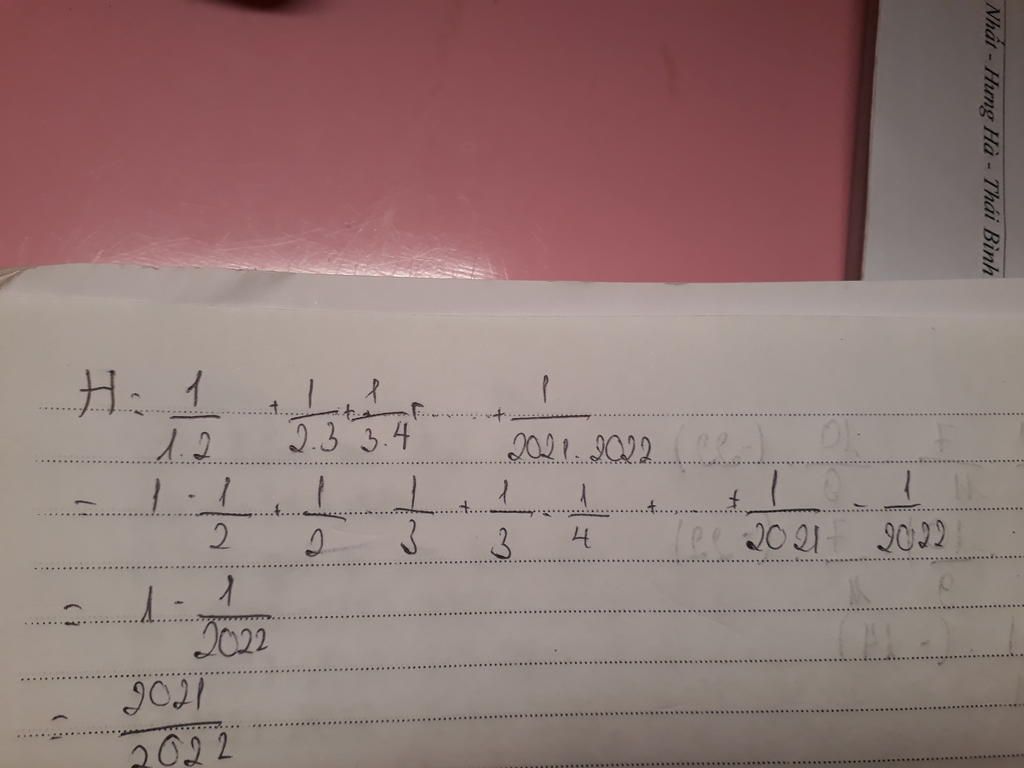 Nhất - Hưng Hà - Thái Bình
H = 1/1.2 + 1/2.3 + 1/3.4 + ..... + 1/2021.2022
= 1 - 1/2 + 1/2 - 1/3 + 1/3 - 1/4 + ... + 1/2021 - 1/2022
= 1 - 1/2022
= 2021/2022